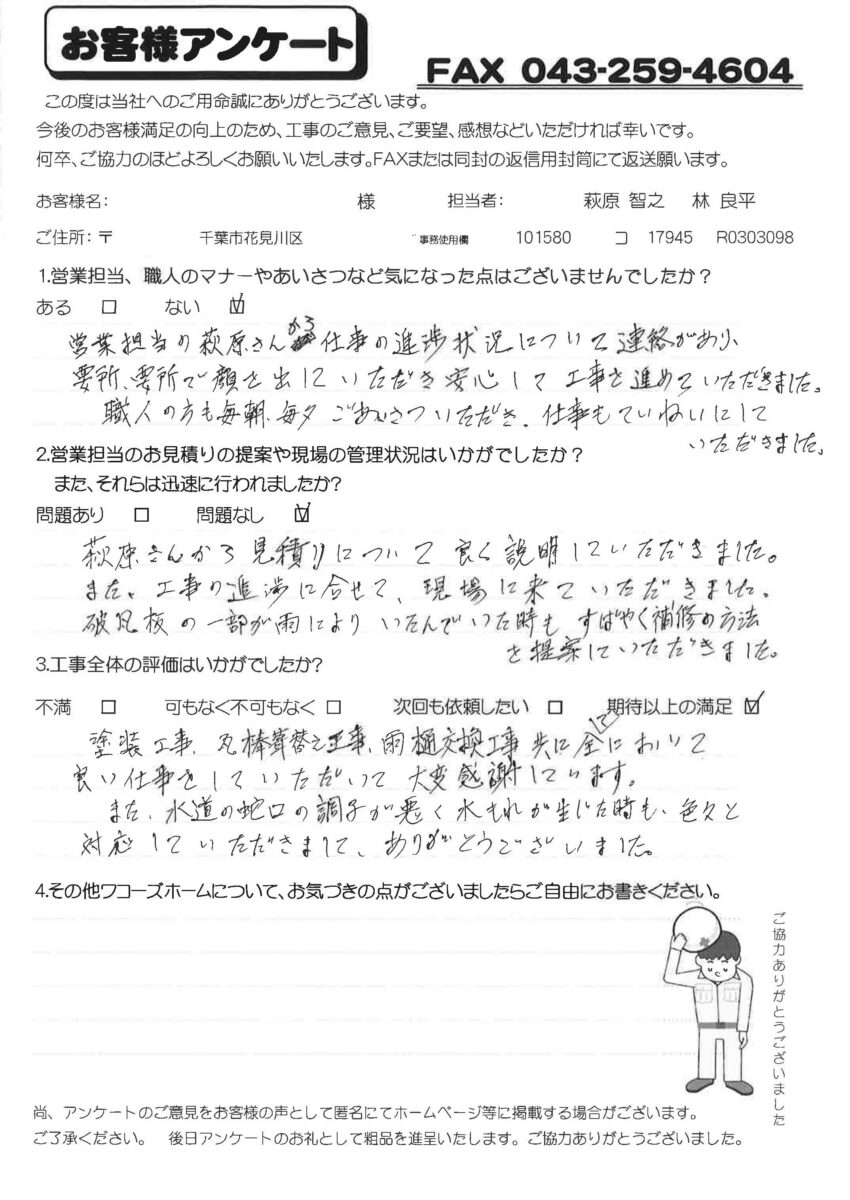 お客様アンケート
FAX 043-259-4604
この度は当社へのご用命誠にありがとうございます。
今後のお客様満足の向上のため、工事のご意見、ご要望、感想などいただければ幸いです。
何卒、ご協力のほどよろしくお願いいたします。FAXまたは同封の返信用封筒にて返送願います。
お客様名： 様 担当者： 萩原 智之 林 良平
ご住所：〒 千葉市花見川区 事務使用欄 101580 コ 17945 R0303098
1.営業担当、職人のマナーやあいさつなど気になった点はございませんでしたか？
ある □ ない ☑
営業担当の萩原さんから仕事の進捗状況について連絡があり、
要所、要所で顔を出していただき安心して工事を進めていただきました。
職人の方も毎朝、毎夕ごあいさついただき、仕事もていねいにして
いただきました。
2.営業担当のお見積りの提案や現場の管理状況はいかがでしたか？
また、それらは迅速に行われましたか？
問題あり □ 問題なし ☑
萩原さんから見積りについて良く説明していただきました。
また、工事の進渉に合せて、現場に来ていただきました。
破風板の一部が雨によりいたんでいた時もすばやく補修の方法
を提案していただきました。
3.工事全体の評価はいかがでしたか？
不満 □ 可もなく不可もなく □ 次回も依頼したい □ 期待以上の満足 ☑
塗装工事、瓦棒葺替え工事、雨樋交換工事共に全てにおいて
良い仕事をしていただいて大変感謝しています。
また、水道の蛇口の調子が悪く水もれが生じた時も、色々と
対応していただきまして、ありがとうございました。
4.その他ワコーズホームについて、お気づきの点がございましたらご自由にお書きください。
ご協力ありがとうございました
尚、アンケートのご意見をお客様の声として匿名にてホームページ等に掲載する場合がございます。
ご了承ください。 後日アンケートのお礼として粗品を進呈いたします。ご協力ありがとうございました。